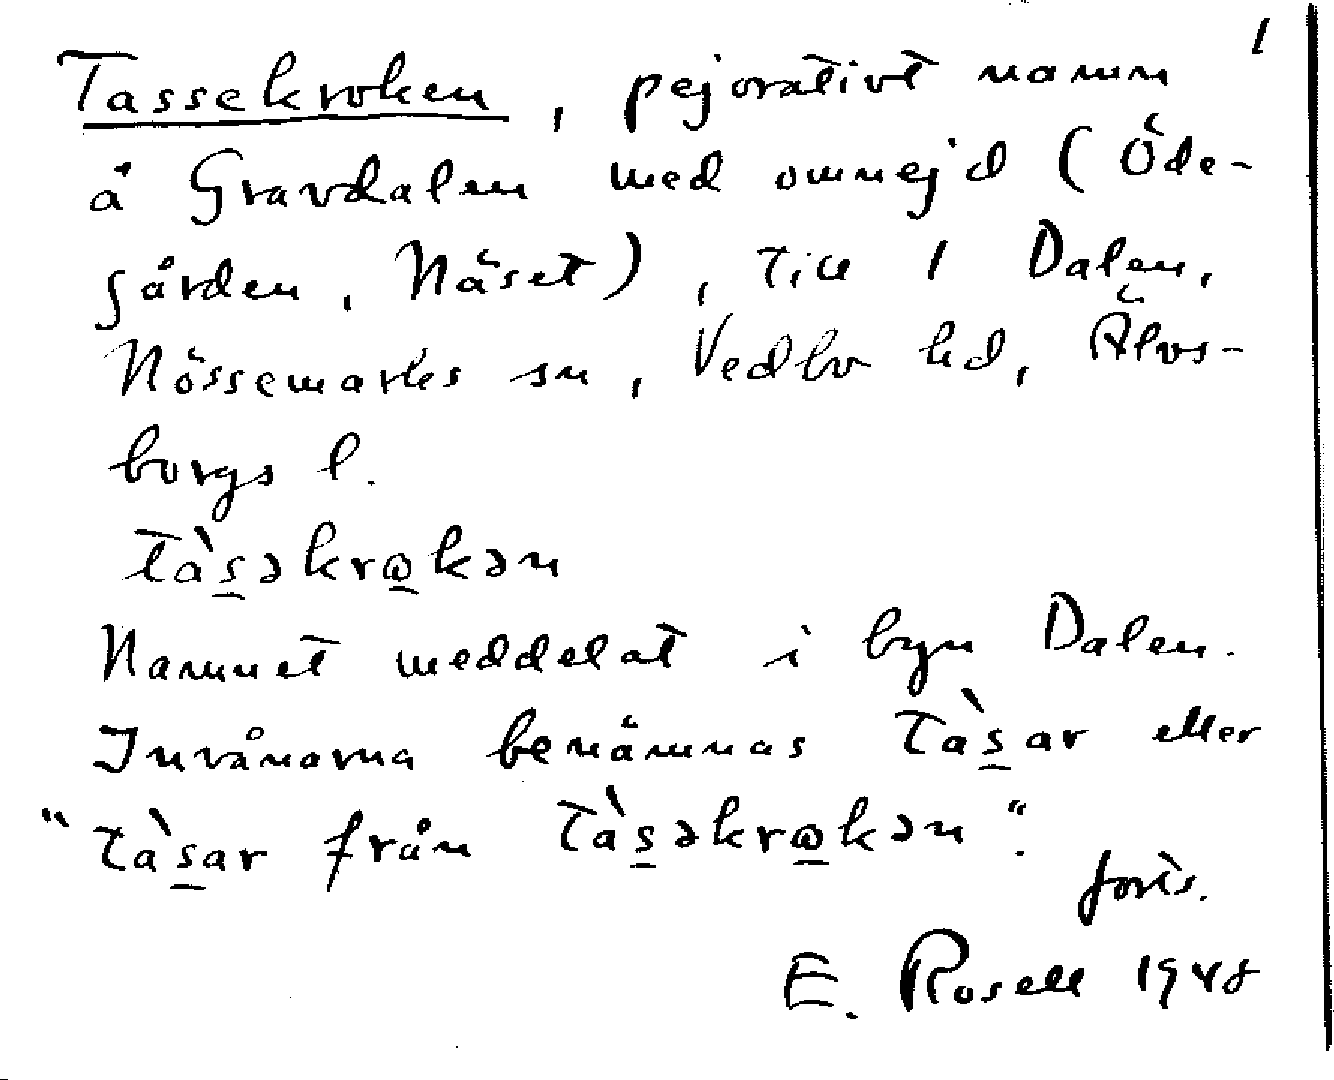 1
Tassekroken, pejorativt namn
å Gravdalen med omnejd (Öde-
gården, Näset), till 1 Dalen,
Nössemarks sn, Vedbo hd, Älvs-
borgs l.
tàs̲əkrω̲kən
Namnet meddelat i byn Dalen.
Invånarna benämnas tàs̲ar eller
"tàs̲ar från tàs̲əkrω̲kən".
forts.
E. Rosell 1948